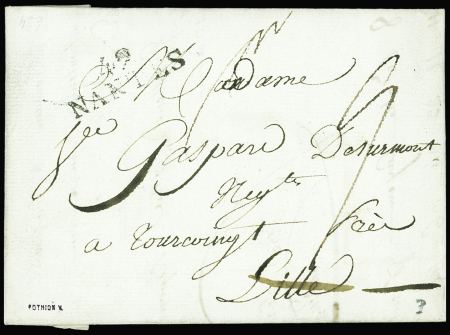 42
NANTES
Madame
Vve Gaspard Desurmont
Negte
a tourcoingt
Lille
POTHION
?